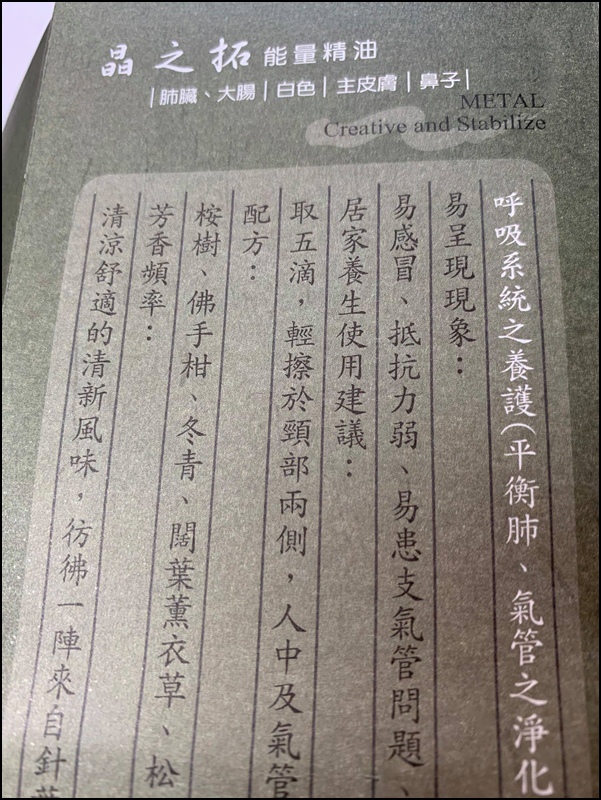 晶之拓能量精油
|肺臟、大腸|白色|主皮膚|鼻子|
METAL
Creative and Stabilize
呼吸系統之養護(平衡肺、氣管之淨化
易呈現現象：
易感冒、抵抗力弱、易患支氣管問題、
居家養生使用建議：
取五滴，輕擦於頸部兩側，人中及氣管
配方：
桉樹、佛手柑、冬青、闊葉薰衣草、松
芳香頻率：
清涼舒適的清新風味，彷彿一陣來自針